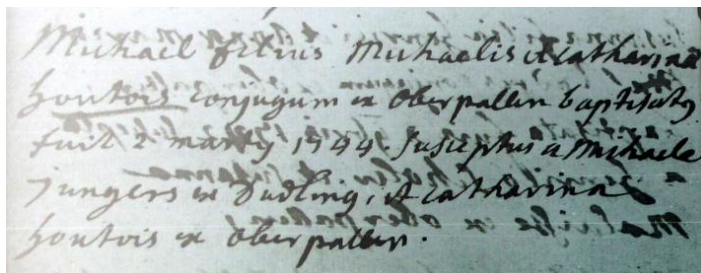 Michael filius Michaelis et Catharina
houtois conjugum ex Oberpallen baptisatus
fuit 2 marty 1744. susceptus a Michaele
Jungers ex Dudling, et Catharina
houtois ex Oberpallen.